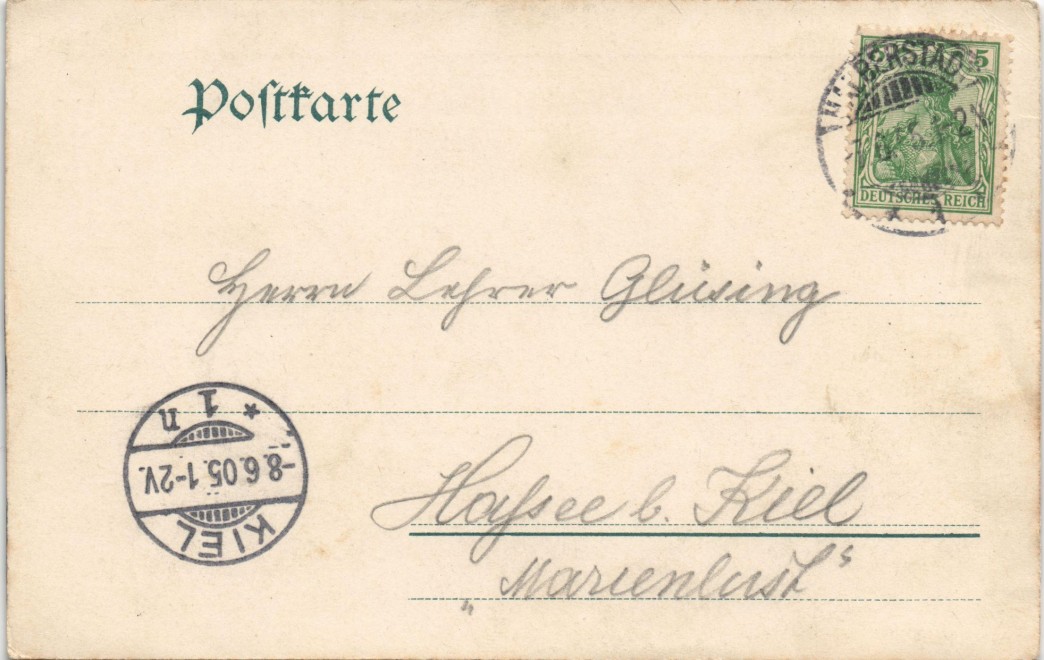 Postkarte
HALBERSTADT
5
DEUTSCHES REICH
* 1
Herrn Lehrer Glüsing
* 1 n
-8.6.05.1-2V.
KIEL
Hassee b. Kiel
„Marienlust“